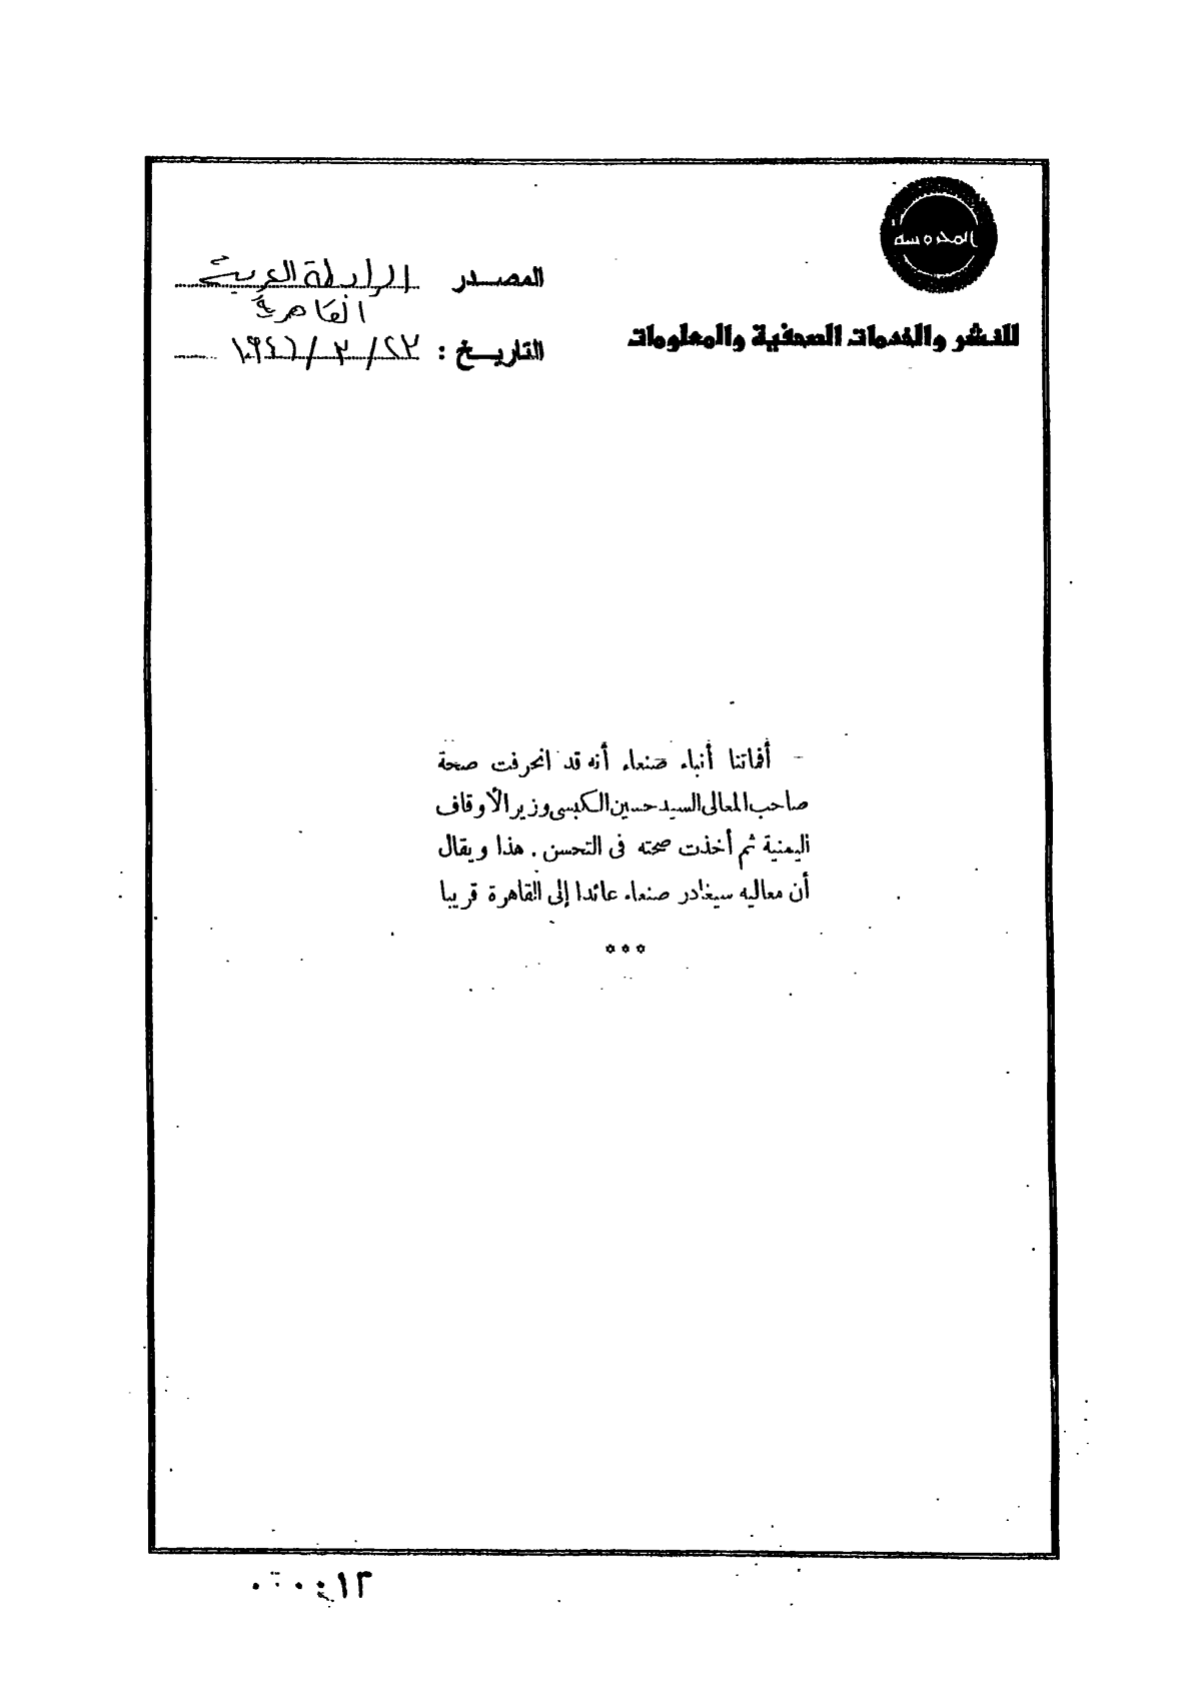 المحروسة
للنشر والخدمات الصحفية والمعلومات
المصدر الرابطة العربية
القاهرية
التاريخ : ٢٣/٣/١٩٤٦
– أفاتنا أنباء صنعاء أنه قد انحرفت صحة
صاحب المعالى السيد حسين الكبسى وزير الأوقاف
اليمنية ثم أخذت صحته فى التحسن . هذا ويقال
أن معاليه سيغادر صنعاء عائدا إلى القاهرة قريبا